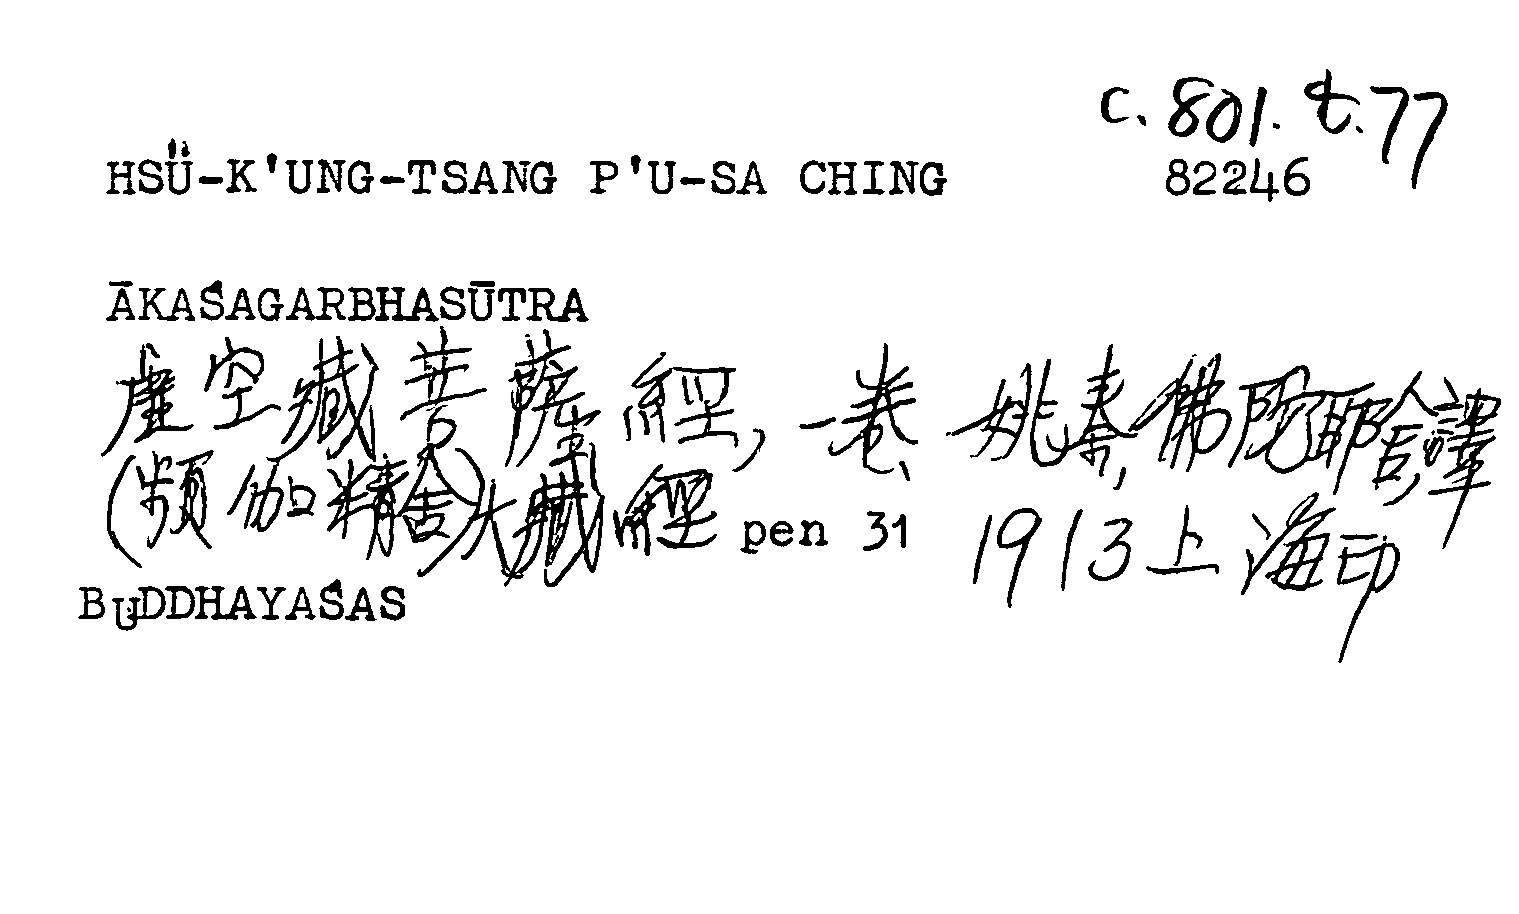 c. 801. t. 77
HSÜ-K'UNG-TSANG P'U-SA CHING 82246
ĀKAŚAGARBHASŪTRA
虛空藏菩薩經, 一卷、姚秦, 佛陀耶舍, 譯
(頻伽精舍)大藏經 pen 31 1913 上海印
BUDDHAYAŚAS